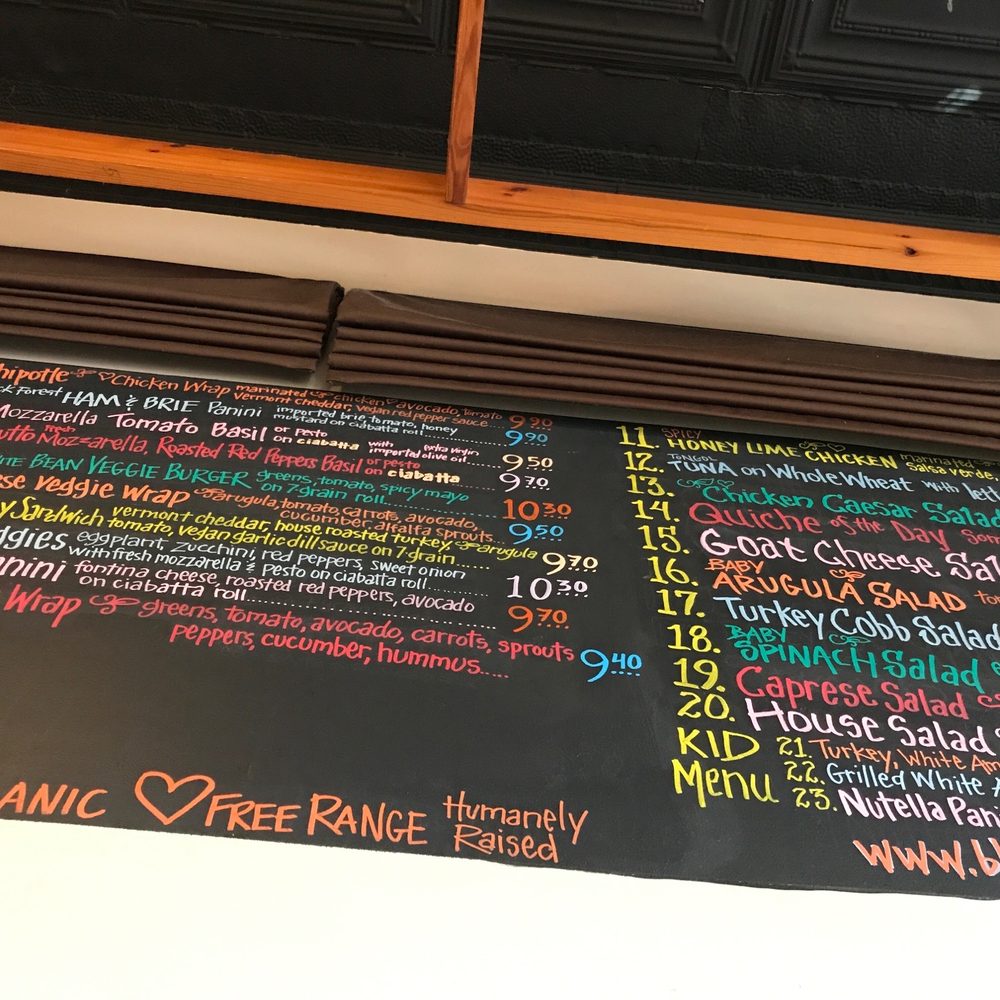 hipotle Chicken Wrap marinated chicken avocado, tomato
vermont cheddar, vegan red pepper sauce 9.90
ck Forest HAM & BRIE Panini imported brie, tomato, honey
mustard on ciabatta roll 9.90
Mozzarella Tomato Basil or pesto on ciabatta with extra virgin imported olive oil 9.50
utto fresh Mozzarella, Roasted Red Peppers Basil or pesto on ciabatta 9.70
ite BEAN VEGGIE BURGER greens, tomato, spicy mayo
on 7-grain roll 10.30
ese veggie wrap arugula, tomato, carrots, avocado,
cucumber, alfalfa sprouts... 9.50
y Sandwich vermont cheddar, house roasted turkey, arugula
tomato, vegan garlic dill sauce on 7-grain...... 9.70
ggies eggplant, zucchini, red peppers, sweet onion
with fresh mozzarella & pesto on ciabatta roll.. 10.30
anini fontina cheese, roasted red peppers, avocado
on ciabatta roll 9.70
Wrap greens, tomato, avocado, carrots, sprouts
peppers, cucumber, hummus..... 9.40
ANIC ♡ FREE RANGE Humanely
Raised
11. SPICY HONEY LIME CHICKEN marinated
salsa verde,
12. TONGOL TUNA on Whole Wheat with lett
13. Chicken Caesar Salad
14. Quiche of the Day Som
15. Goat Cheese Sal
16. BABY ARUGULA SALAD to
17. Turkey Cobb Salad
18. BABY SPINACH Salad
19. Caprese Salad
20. House Salad
KID Menu
21. Turkey, White Am
22. Grilled White A
23. Nutella Pani
www.bl